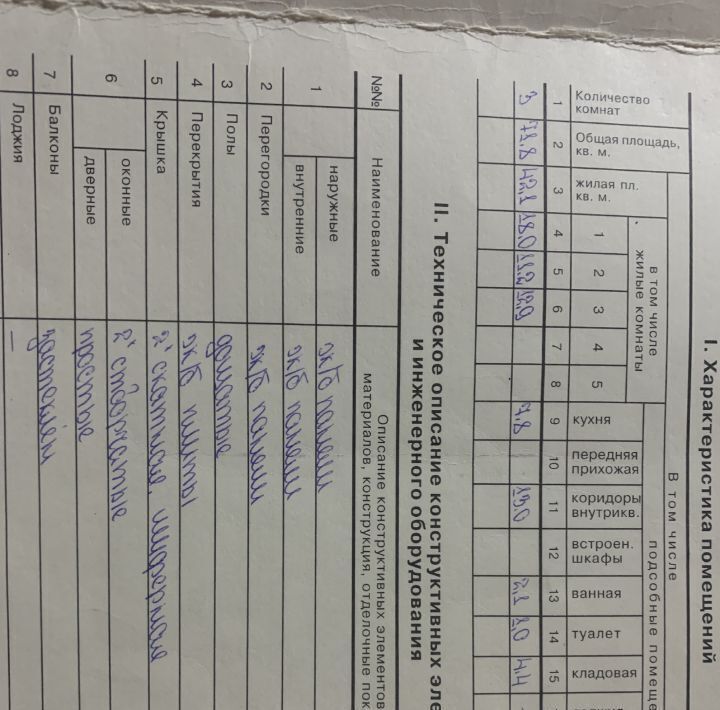 I. Характеристика помещений
В том числе
Количество комнат
Общая площадь, кв. м.
жилая пл. кв. м.
в том числе жилые комнаты
1 2 3 4 5
подсобные помеще
кухня
передняя прихожая
коридоры внутрикв.
встроен. шкафы
ванная
туалет
кладовая
1 2 3 4 5 6 7 8 9 10 11 12 13 14 15
3 72.8 42.1 18.0 11.2 12.9 7.8 13.0 2,1 1.0 4.4
II. Техническое описание конструктивных эле
и инженерного оборудования
№№ Наименование Описание конструктивных элементов
материалов, конструкция, отделочные пок
1 наружные ж/б панели
внутренние ж/б панели
2 Перегородки ж/б панели
3 Полы дощатые
4 Перекрытия ж/б плиты
5 Крышка 2х скатная, шиферная
6 оконные 2х створчатые
дверные простые
7 Балконы застеклён
8 Лоджия —